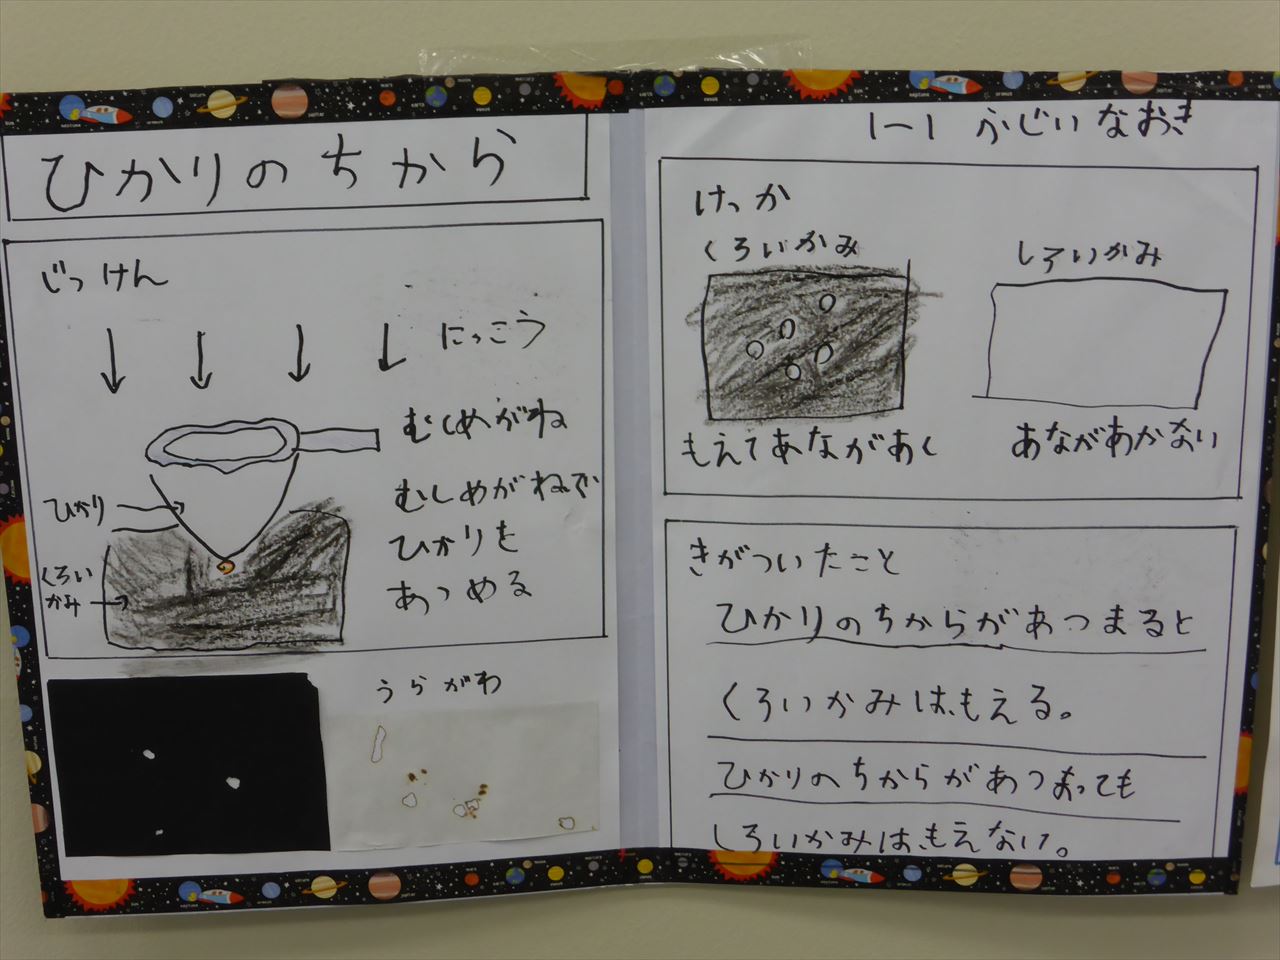 ひかりのちから
じっけん
にっこう
むしめがね
ひかり
むしめがねで
ひかりを
あつめる
くろい
かみ
うらがわ
1-1 ふじいなおき
けっか
くろいかみ
しろいかみ
もえてあながあく
あながあかない
きがついたこと
ひかりのちからがあつまると
くろいかみは、もえる。
ひかりのちからがあつまっても
しろいかみは、もえない。